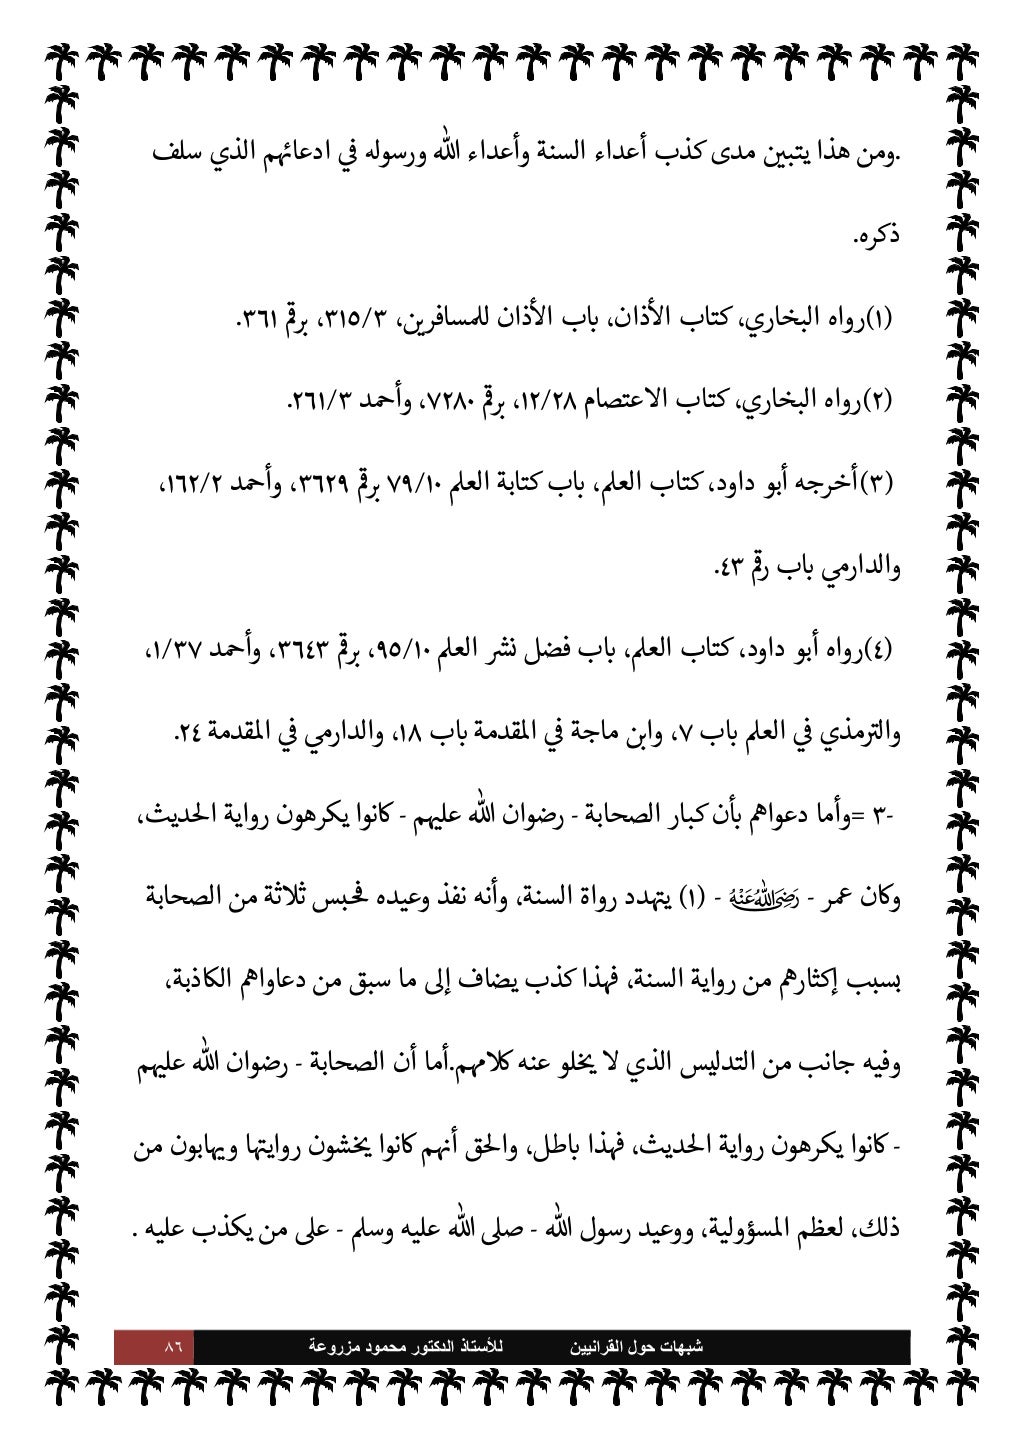 .ومن هذا يتبين مدى كذب أعداء السنة وأعداء الله ورسوله في ادعائهم الذي سلف
ذكره.
(١)رواه البخاري، كتاب الأذان، باب الأذان للمسافرين، ٣١٥/٣، برقم ٣٦١.
(٢)رواه البخاري، كتاب الاعتصام ١٢/٢٨، برقم ٧٢٨٠، وأحمد ٢٦١/٣.
(٣)أخرجه أبو داود، كتاب العلم، باب كتابة العلم ٧٩/١٠ برقم ٣٦٢٩، وأحمد ١٦٢/٢،
والدارمي باب رقم ٤٣.
(٤)رواه أبو داود، كتاب العلم، باب فضل نشر العلم ٩٥/١٠، برقم ٣٦٤٣، وأحمد ١/٣٧،
والترمذي في العلم باب ٧، وابن ماجة في المقدمة باب ١٨، والدارمي في المقدمة ٢٤.
-٣ =وأما دعواهم بأن كبار الصحابة - رضوان الله عليهم - كانوا يكرهون رواية الحديث،
وكان عمر - رَضِيَ اللَّهُ عَنْهُ - (١) يتهدد رواة السنة، وأنه نفذ وعيده فحبس ثلاثة من الصحابة
بسبب إكثارهم من رواية السنة، فهذا كذب يضاف إلى ما سبق من دعاواهم الكاذبة،
وفيه جانب من التدليس الذي لا يخلو عنه كلامهم.أما أن الصحابة - رضوان الله عليهم
- كانوا يكرهون رواية الحديث، فهذا باطل، والحق أنهم كانوا يخشون روايتها ويهابون من
ذلك، لعظم المسؤولية، ووعيد رسول الله - صلى الله عليه وسلم - على من يكذب عليه .
شبهات حول القرانيين للأستاذ الدكتور محمود مزروعة ٨٦